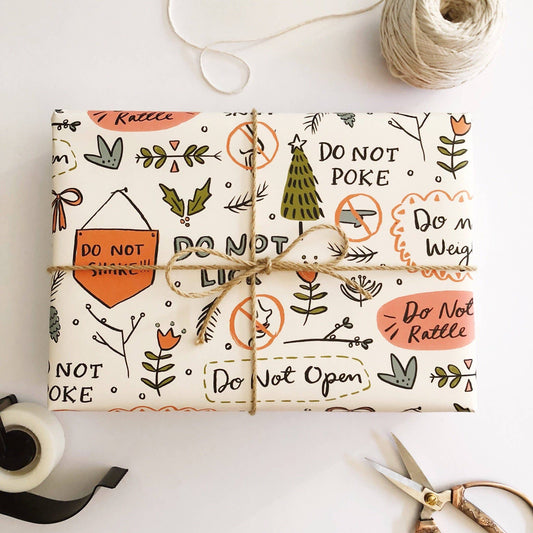 Rattle
DO NOT
POKE
DO NOT
SHAKE!!!
DO NOT
LICK
Do n
Weig
Do Not
Rattle
DO NOT
POKE
Do Not Open